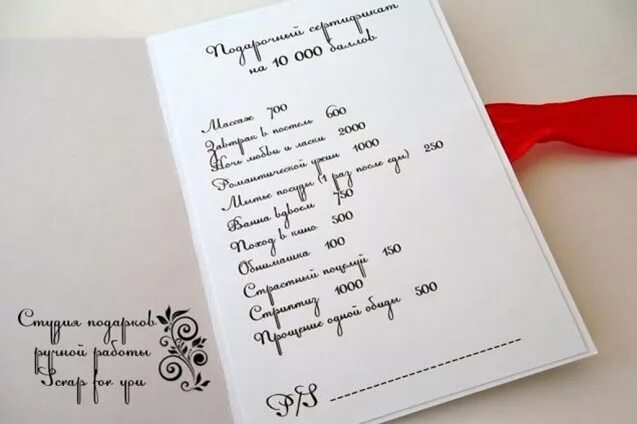 Подарочный сертификат
на 10 000 баллов
Массаж 700
Завтрак в постель 600
Ночь любви и ласки 2000
Романтический ужин 1000
Мытье посуды (1 раз после еды) 250
Ванна вдвоем 750
Поход в кино 500
Обнимашка 100
Страстный поцелуй 150
Стриптиз 1000
Прощение одной обиды 500
P/S
Студия подарков
ручной работы
Scrap for you